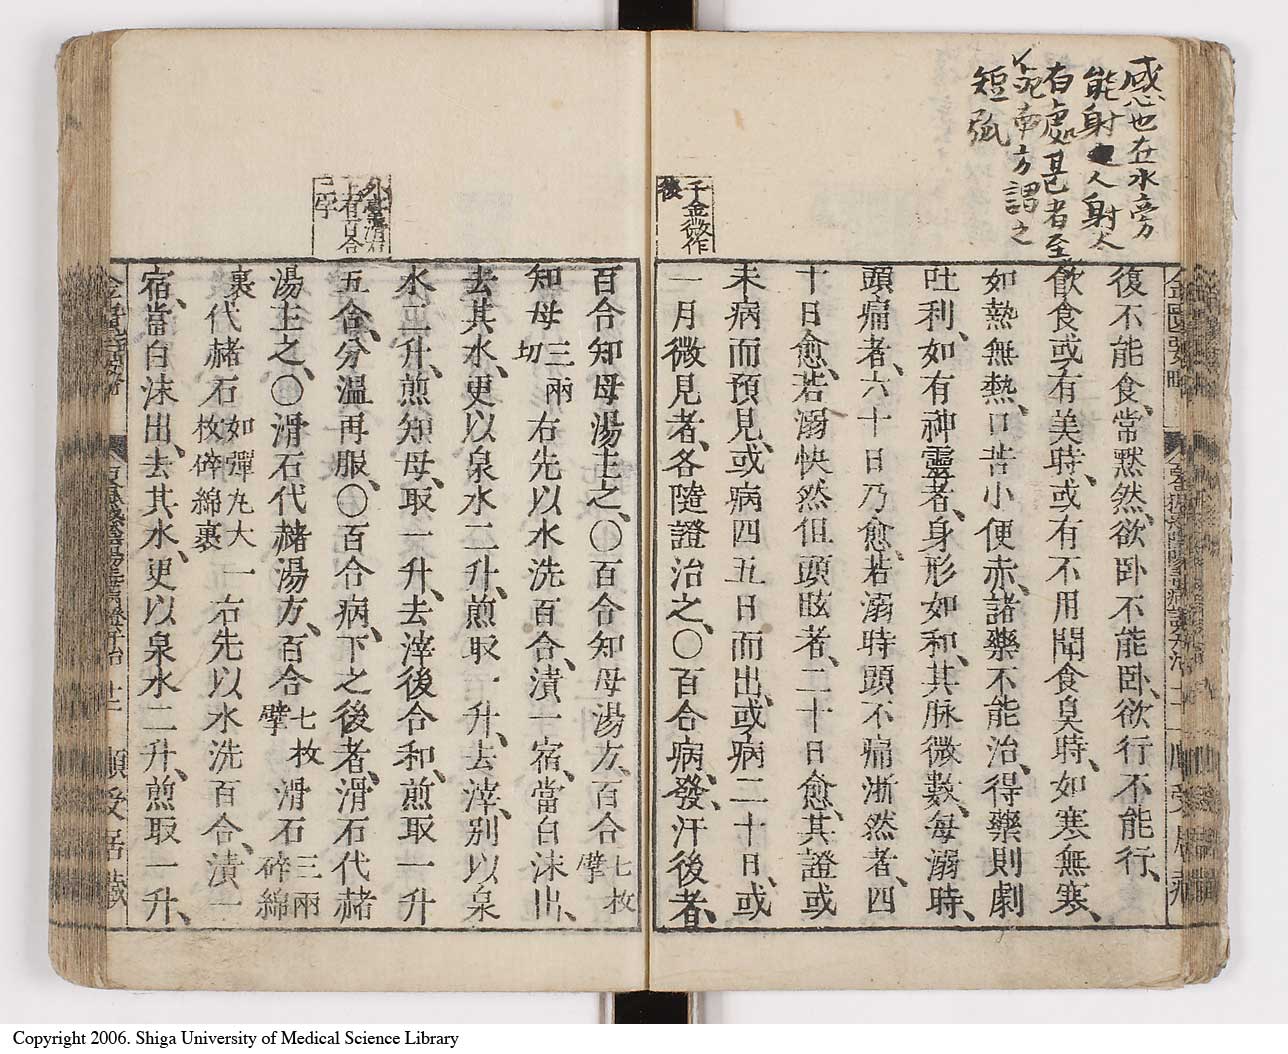 感也在水旁
能射人人射人
有處甚者至
死南方謂之
短弧
千金微作
後
復不能食、常默然、欲卧不能卧、欲行不能行、
飲食或有美時、或有不用聞食臭時、如寒無寒、
如熱無熱、口苦小便赤、諸藥不能治、得藥則劇
吐利、如有神靈者、身形如和、其脉微數、每溺時、
頭痛者、六十日乃愈、若溺時頭不痛淅然者、四
十日愈、若溺快然但頭眩者、二十日愈、其證或
未病而預見、或病四五日而出、或病二十日、或
一月微見者、各隨證治之、〇百合病、發汗後者、
上有百合
二字
百合知母湯主之、〇百合知母湯方、百合七枚擘
知母三兩切右先以水洗百合、漬一宿、當白沫出、
去其水、更以泉水二升、煎取一升、去滓、別以泉
水二升、煎知母、取一升、去滓後合和、煎取一升
五合、分溫再服、〇百合病、下之後者、滑石代赭
湯主之、〇滑石代赭湯方、百合七枚擘滑石三兩碎綿
裹代赭石如彈丸大一枚碎綿裹右先以水洗百合、漬一
宿、當白沫出、去其水、更以泉水二升、煎取一升、
Copyright 2006. Shiga University of Medical Science Library